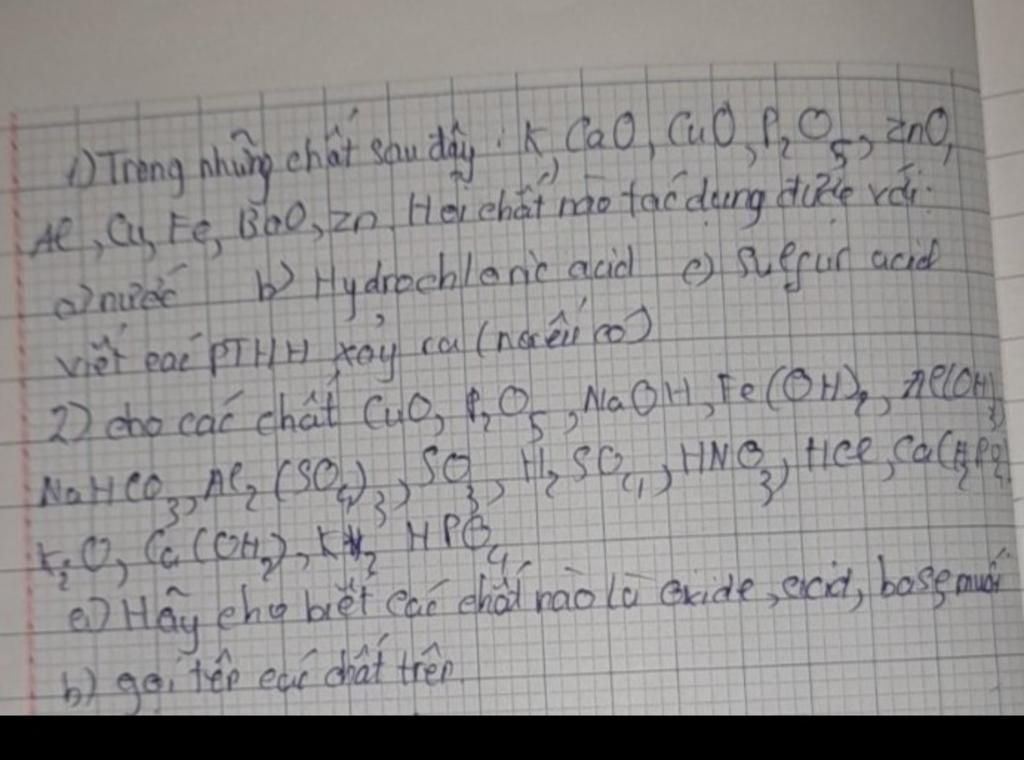 1) Trong những chất sau đây: K, CaO, CuO, P₂O₅, ZnO,
Al, Cu, Fe, BaO, Zn. Hỏi chất nào tác dụng được với:
a) nước b) Hydrochloric acid c) Sulfur acid
viết các PTHH xảy ra (nếu có)
2) cho các chất CuO, P₂O₅, NaOH, Fe(OH)₂, Al(OH)₃
NaHCO₃, Al₂(SO₄)₃, SO₃, H₂SO₄, HNO₃, HCl, Ca(H₂PO₄)₂
K₂O, Ca(OH₂), K₂HPO₄
a) Hãy cho biết các chất nào là oxide, acid, base, muối
b) gọi tên các chất trên